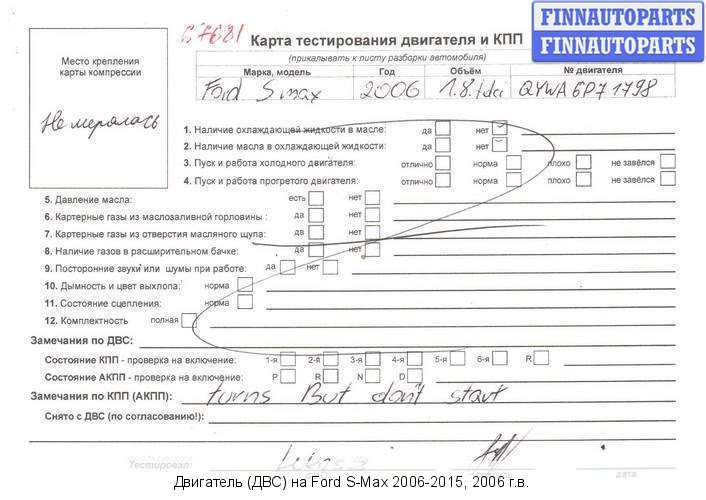 67621
Карта тестирования двигателя и КПП
FINNAUTOPARTS
FINNAUTOPARTS
(прикалывать к листу разборки автомобиля)
Место крепления
карты компрессии
Не мерялась
Марка, модель Год Объём № двигателя
Ford S max 2006 1.8 tdci QYWA 6P71798
1. Наличие охлаждающей жидкости в масле: да нет
2. Наличие масла в охлаждающей жидкости: да нет
3. Пуск и работа холодного двигателя: отлично норма плохо не завёлся
4. Пуск и работа прогретого двигателя: отлично норма плохо не завёлся
5. Давление масла: есть нет
6. Картерные газы из маслозаливной горловины : да нет
7. Картерные газы из отверстия масляного щупа: да нет
8. Наличие газов в расширительном бачке: да нет
9. Посторонние звуки или шумы при работе: да нет
10. Дымность и цвет выхлопа: норма
11. Состояние сцепления: норма
12. Комплектность полная
Замечания по ДВС:
Состояние КПП - проверка на включение: 1-я 2-я 3-я 4-я 5-я 6-я R
Состояние АКПП - проверка на включение: P R N D
Замечания по КПП (АКПП): turns But don't start
Снято с ДВС (по согласованию!):
Тестировал: дата
Двигатель (ДВС) на Ford S-Max 2006-2015, 2006 г.в.